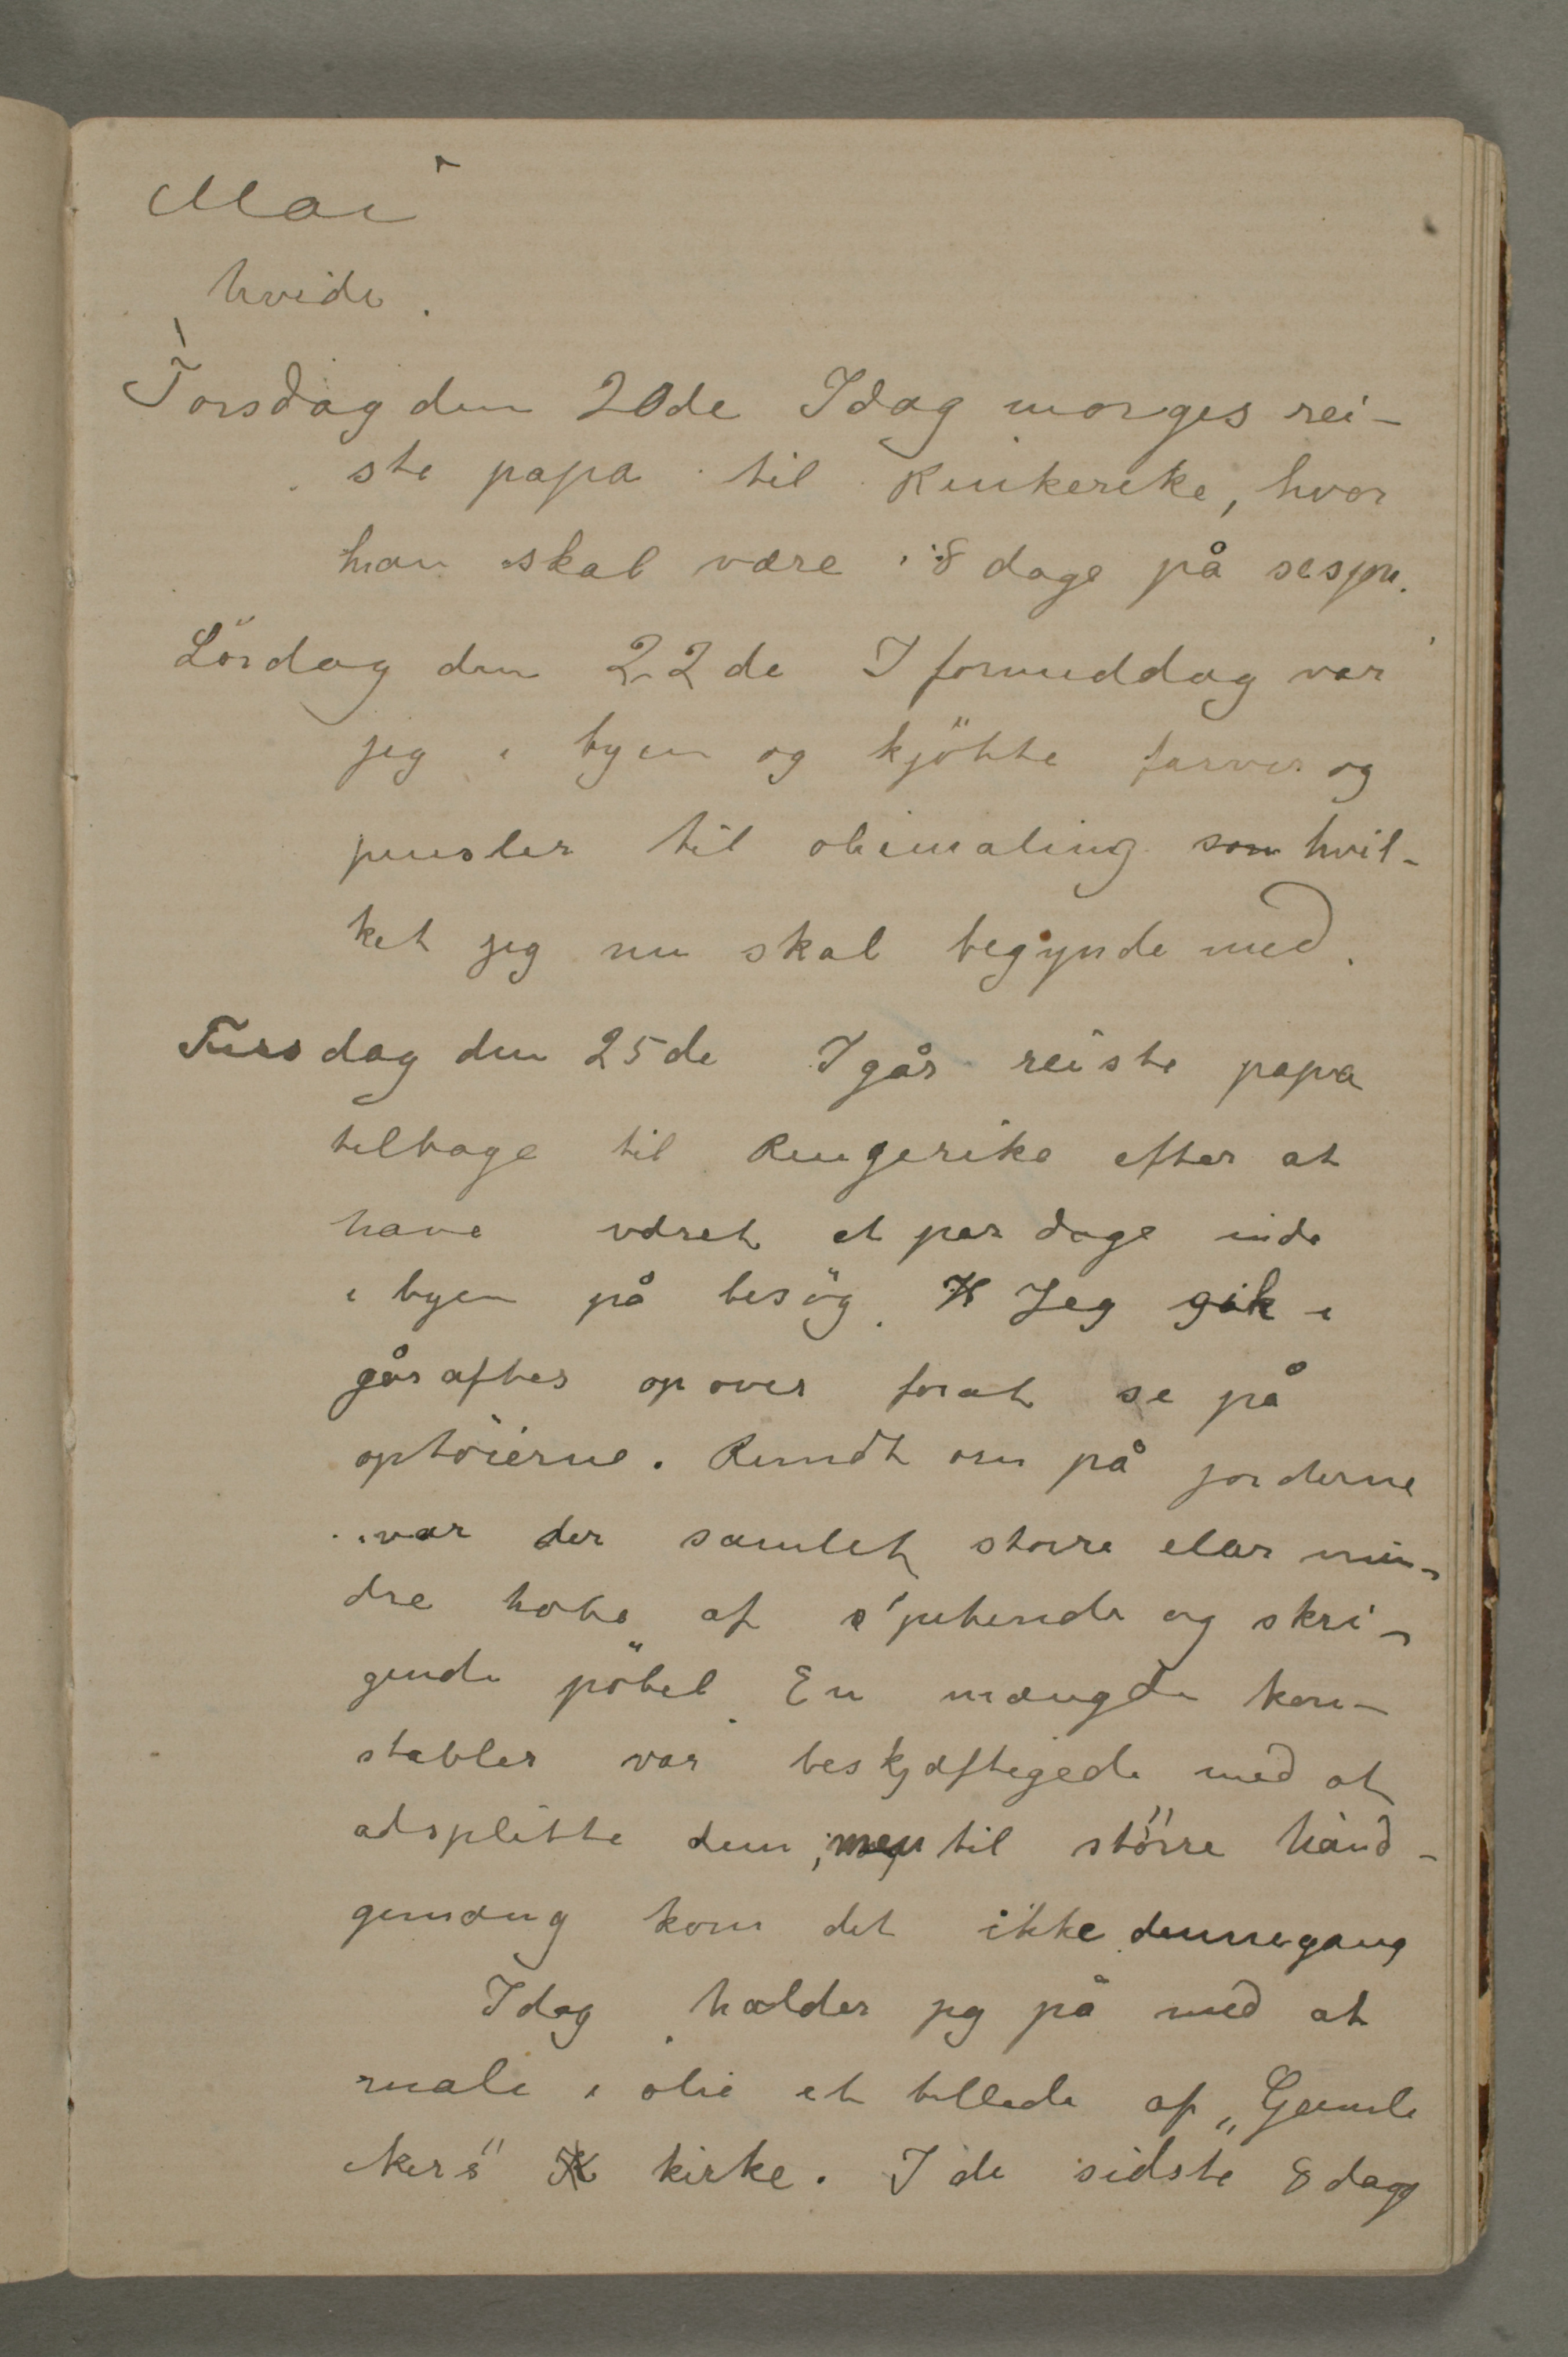 Mai
hvide.
Torsdag den 20de Idag morges rei-
ste papa til Rinkerike, hvor
han skal være i 8 dage på sesjon.
Lördag den 22de I formiddag var
jeg i byen og kjöbte farver og
pensler til oliemaling som hvil-
ket jeg nu skal begynde med.
Tirsdag den 25de Igår reiste papa
tilbage til Ringerike efter at
have været et par dage inde
i byen på besög. Jeg gik i
går aftes op over forat se på
optöierne. Rundt om på jorderne
var der samlet storre eler min-
dre hobe af pibende og skri-
gende pöbel. En mængde kon-
stabler var beskjæftigede med at
adsplitte dem, men til större hånd-
gemæng kom det ikke dennegang
Idag holder jeg på med at
male i olie et billede af „Gamle
Akers" kirke. I de sidste 8 dage